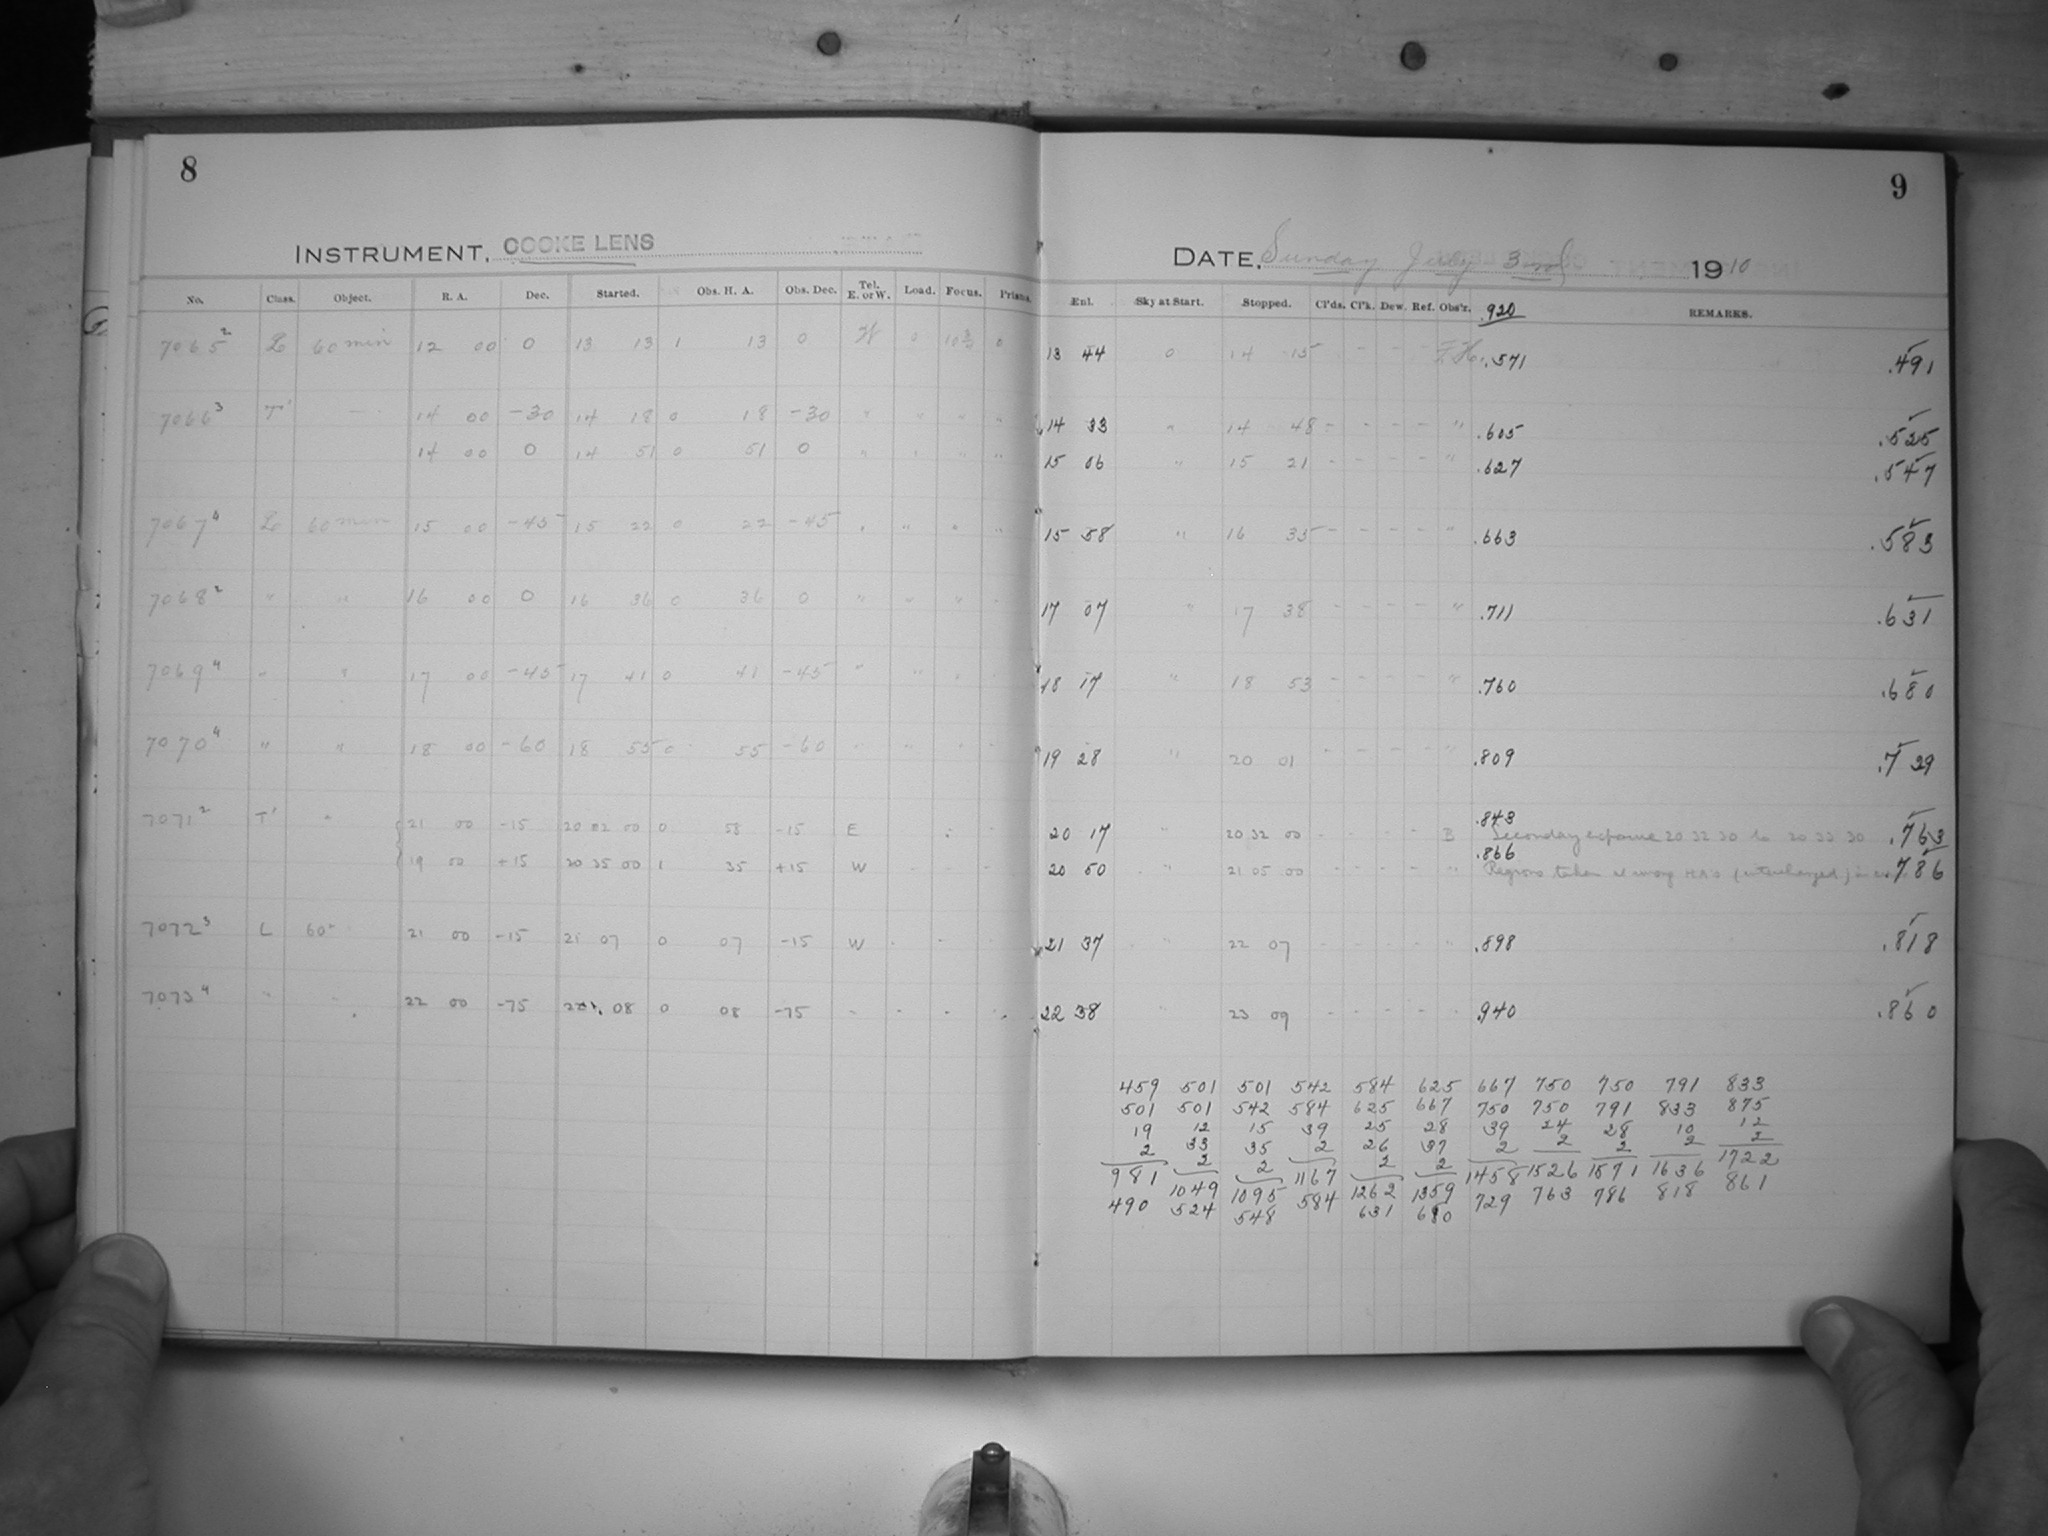 8
INSTRUMENT, COOKE LENS
No. Class. Object. R. A. Dec. Started. Obs. H. A. Obs. Dec. Tel. E. or W. Load. Focus. Prisms.
7065² L 60 min 12 00 0 13 13 1 13 0 W 0 10¾ 0
7066³ T' — 14 00 -30 14 18 0 18 -30 " " " "
14 00 0 14 51 0 51 0 " " " "
7067⁴ L 60 min 15 00 -45 15 22 0 22 -45 " " " "
7068² " " 16 00 0 16 36 0 36 0 " " " "
7069⁴ " " 17 00 -45 17 41 0 41 -45 " " " "
7070⁴ " " 18 00 -60 18 55 0 55 -60 " " " "
7071² T' " 21 00 -15 20 02 00 0 58 -15 E
19 00 +15 20 35 00 1 35 +15 W
7072³ L 60" 21 00 -15 21 07 0 07 -15 W
7073⁴ " " 22 00 -75 22 08 0 08 -75
9
DATE, Sunday July 3rd 1910
Enl. Sky at Start. Stopped. Cl'ds. Cl'k. Dew. Ref. Obs'r. .920 REMARKS.
13 44 0 14 15 - - - - F.H. .571 .491
14 33 " 14 48 - - - - " .605 .525
15 06 " 15 21 - - - - " .627 .547
15 58 " 16 35 - - - - " .663 .583
17 07 " 17 38 - - - - " .711 .631
18 17 " 18 53 - - - - " .760 .680
19 28 " 20 01 - - - - " .809 .729
.843
20 17 " 20 32 00 - - - - B Secondary exposure 20 32 30 to 20 33 30 .763
.866
20 50 " 21 05 00 - - - - " Regions taken at wrong HA's (interchanged) .786
21 37 " 22 07 - - - - " .898 .818
22 38 " 23 09 - - - - " .940 .860
459 501 501 542 584 625 667 750 750 791 833
501 501 542 584 625 667 750 750 791 833 875
19 12 15 39 25 28 39 24 28 10 12
2 33 35 2 26 37 2 2 2 2 2
981 2 2 1167 2 2 1458 1526 1571 1636 1722
490 1049 1095 584 1262 1359 729 763 786 818 861
524 548 631 680